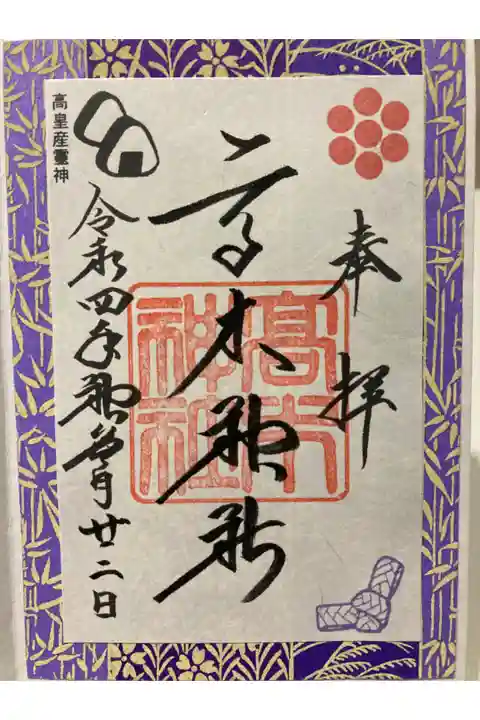 奉拝
高木神社
高木
神社
令和四年神無月廿二日
高皇産霊神